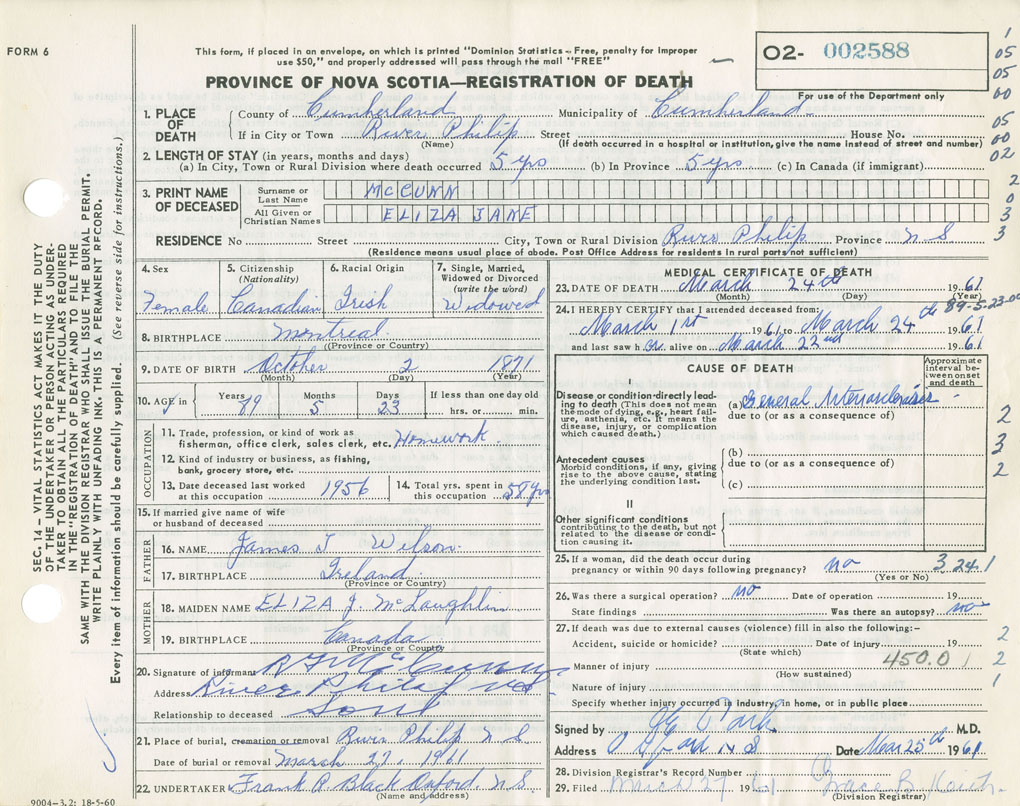 FORM 6
This form, if placed in an envelope, on which is printed "Dominion Statistics – Free, penalty for improper
use $50," and properly addressed will pass through the mail "FREE"
O2- 002588
For use of the Department only
PROVINCE OF NOVA SCOTIA—REGISTRATION OF DEATH
1. PLACE OF DEATH
County of Cumberland Municipality of Cumberland
If in City or Town River Philip Street House No.
(Name) (If death occurred in a hospital or institution, give the name instead of street and number)
2. LENGTH OF STAY (in years, months and days)
(a) In City, Town or Rural Division where death occurred 5 yrs (b) In Province 5 yrs (c) In Canada (if immigrant)
3. PRINT NAME OF DECEASED
Surname or Last Name McCUNN
All Given or Christian Names ELIZA JANE
RESIDENCE No Street City, Town or Rural Division River Philip Province N S
(Residence means usual place of abode. Post Office Address for residents in rural parts not sufficient)
4. Sex Female
5. Citizenship (Nationality) Canadian
6. Racial Origin Irish
7. Single, Married, Widowed or Divorced (write the word) Widowed
8. BIRTHPLACE Montreal
(Province or Country)
9. DATE OF BIRTH October 2 1871
(Month) (Day) (Year)
10. AGE in Years Months Days If less than one day old
89 5 23 hrs. or min.
OCCUPATION
11. Trade, profession, or kind of work as
fisherman, office clerk, sales clerk, etc. Homework
12. Kind of industry or business, as fishing,
bank, grocery store, etc.
13. Date deceased last worked
at this occupation 1956
14. Total yrs. spent in
this occupation 58 yrs
15. If married give name of wife
or husband of deceased
FATHER
16. NAME James J Wilson
17. BIRTHPLACE Ireland
(Province or Country)
MOTHER
18. MAIDEN NAME ELIZA J. McLaughlin
19. BIRTHPLACE Canada
(Province or Country)
20. Signature of informant McCunn
Address River Philip N.S.
Relationship to deceased Son
21. Place of burial, cremation or removal River Philip N S
Date of burial or removal March 27, 1961
22. UNDERTAKER Frank P. Black Oxford, N.S.
(Name and address)
9004–3,2: 18-5-60
MEDICAL CERTIFICATE OF DEATH
23. DATE OF DEATH March 24th 1961
(Month) (Day) (Year)
89-5-23-00
24. I HEREBY CERTIFY that I attended deceased from:
March 1st 1961 to March 24th 1961
and last saw her alive on March 22nd 1961
CAUSE OF DEATH
Approximate interval between onset and death
I
Disease or condition directly leading to death (This does not mean the mode of dying, e.g., heart failure, asthenia, etc. It means the disease, injury, or complication which caused death.)
(a) General Arteriosclerosis
due to (or as a consequence of)
Antecedent causes
Morbid conditions, if any, giving rise to the above cause, stating the underlying condition last.
(b)
due to (or as a consequence of)
(c)
II
Other significant conditions
contributing to the death, but not related to the disease or condition causing it.
25. If a woman, did the death occur during
pregnancy or within 90 days following pregnancy? no
(Yes or No)
3 24 1
26. Was there a surgical operation? no Date of operation 19
State findings Was there an autopsy? no
27. If death was due to external causes (violence) fill in also the following:-
Accident, suicide or homicide? Date of injury 19
(State which)
Manner of injury 450.0
(How sustained)
Nature of injury
Specify whether injury occurred in industry, in home, or in public place
Signed by M.D.
Address N S Date Mar 25th 1961
28. Division Registrar's Record Number
29. Filed March 27 1961 Grace B.
(Division Registrar)
SEC. 14 – VITAL STATISTICS ACT MAKES IT THE DUTY
OF THE UNDERTAKER OR PERSON ACTING AS UNDER-
TAKER TO OBTAIN ALL THE PARTICULARS REQUIRED
IN THE "REGISTRATION OF DEATH" AND TO FILE THE
SAME WITH THE DIVISION REGISTRAR WHO SHALL ISSUE THE BURIAL PERMIT.
WRITE PLAINLY WITH UNFADING INK. THIS IS A PERMANENT RECORD.
Every item of information should be carefully supplied. (See reverse side for instructions.)
1
05
05
00
05
00
02
2
0
3
3
2
3
2
1
2
2
1